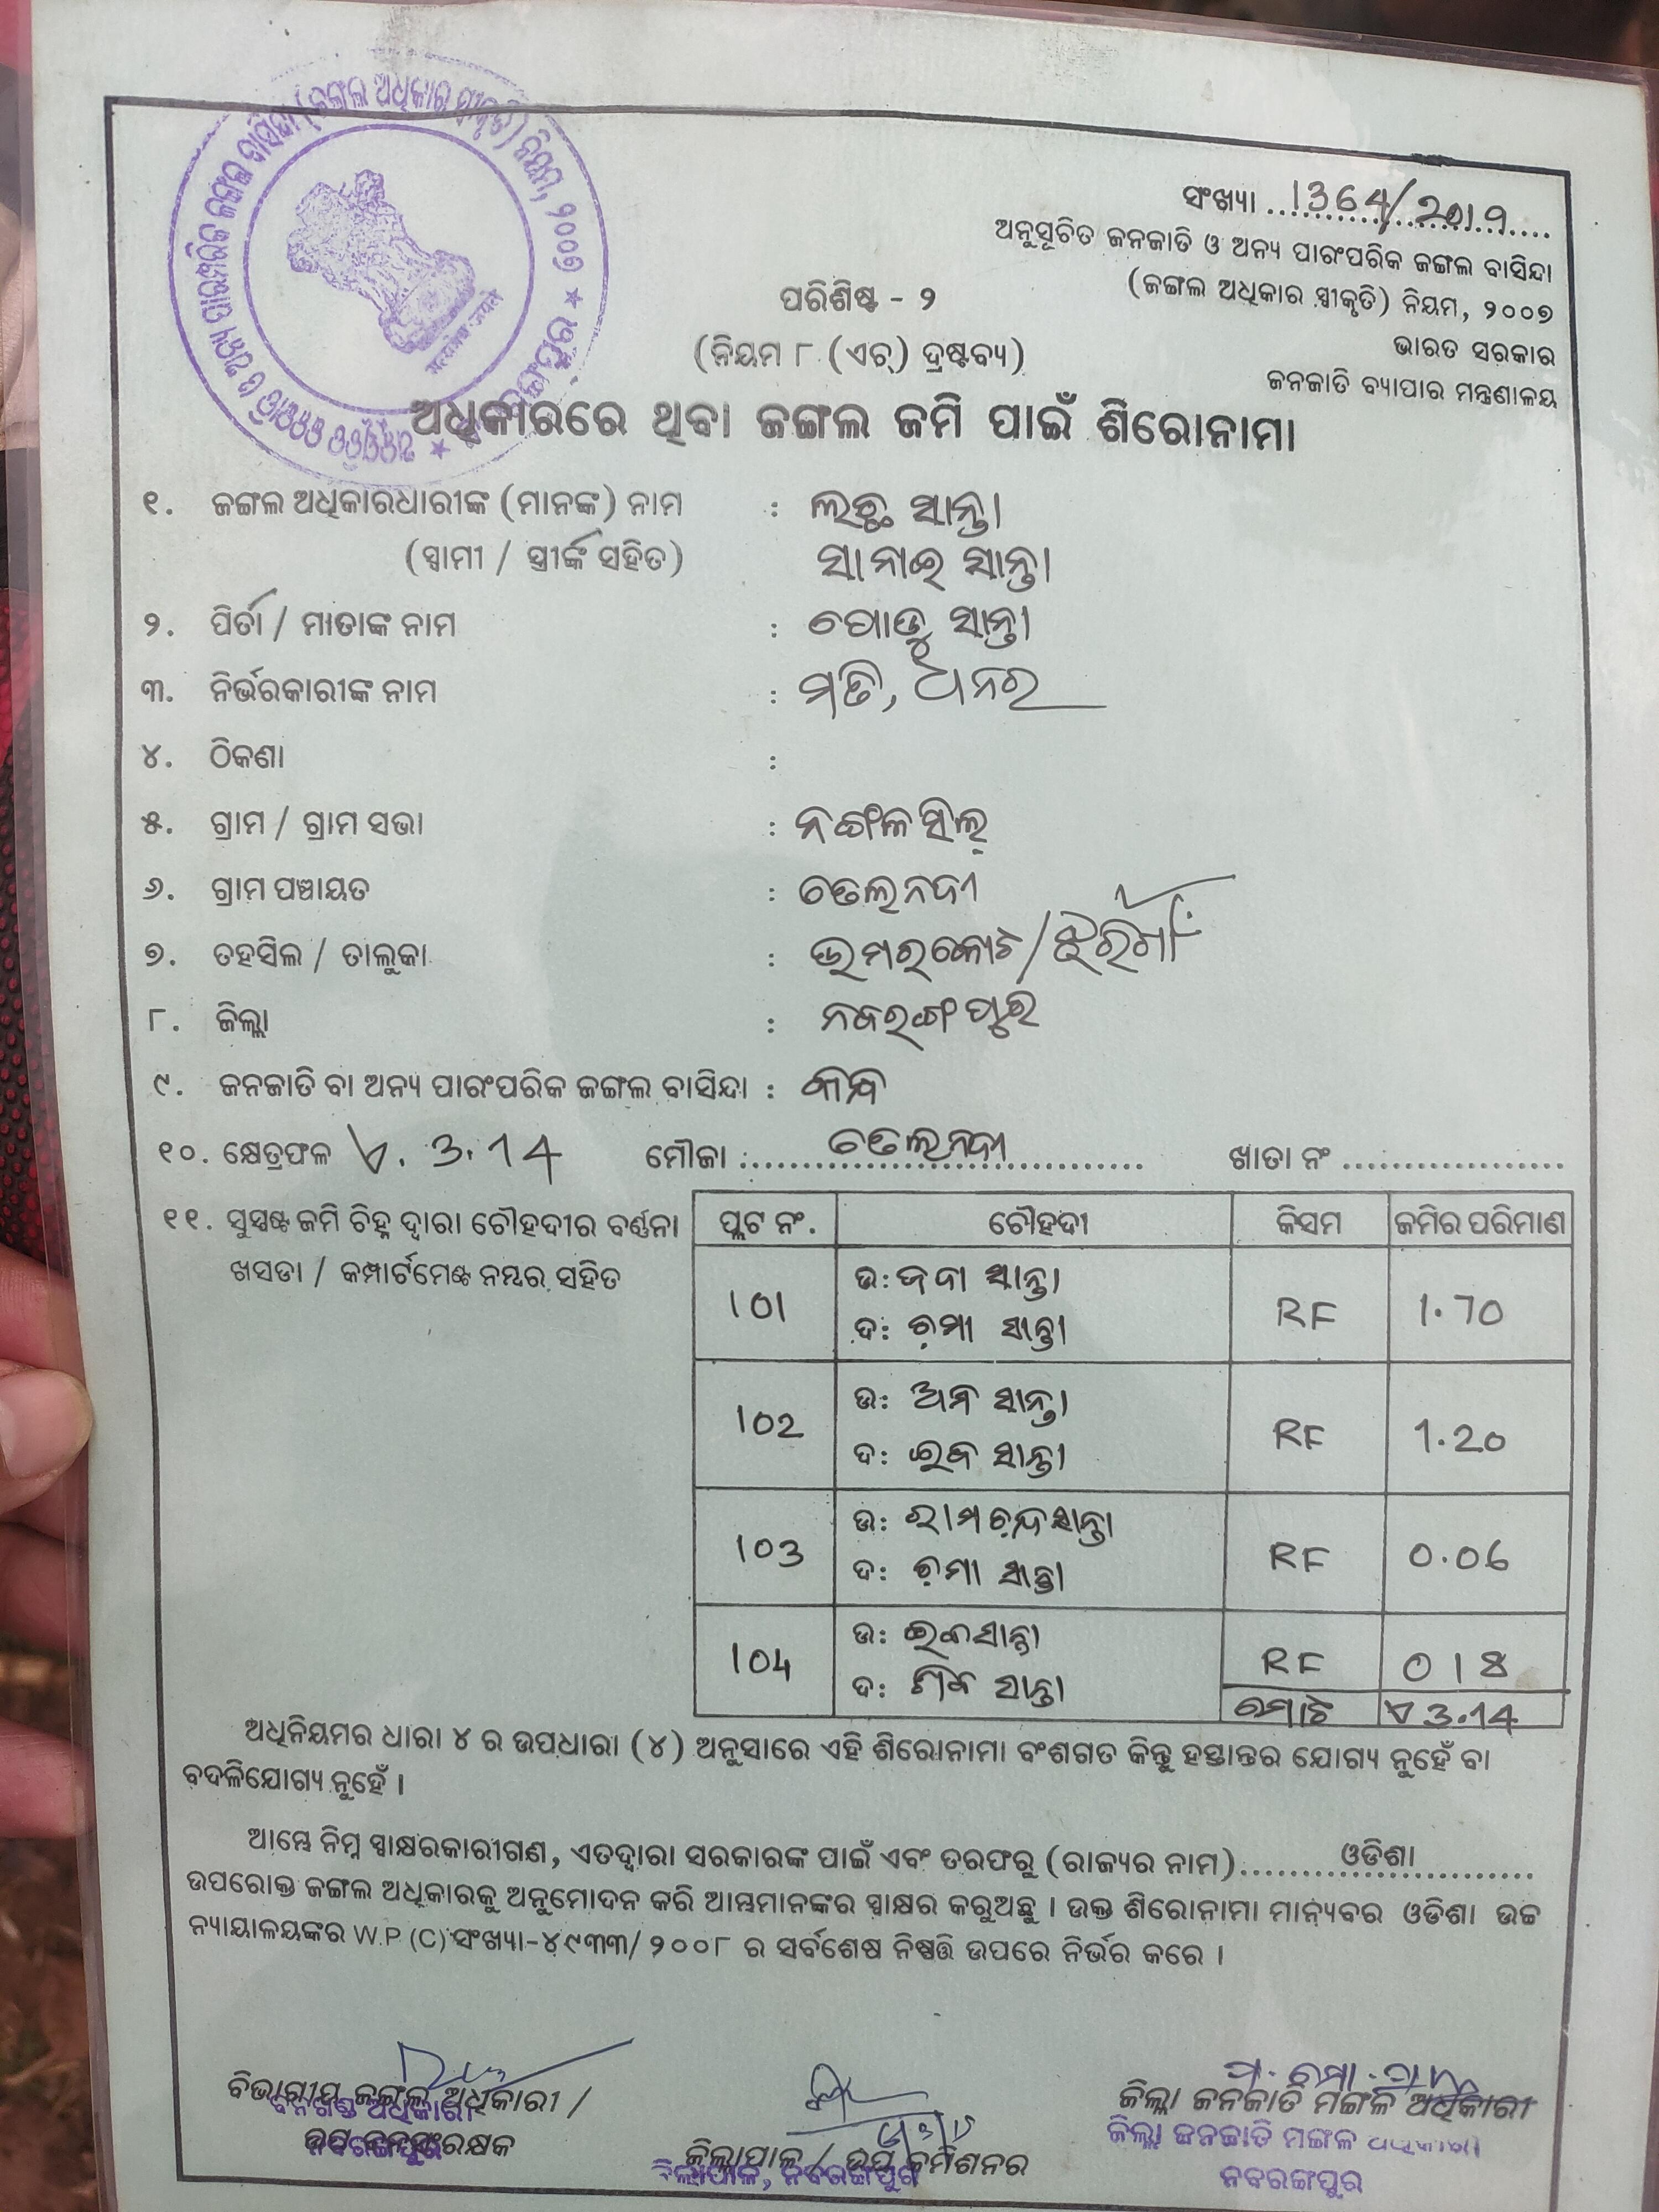 ସଂଖ୍ୟା 1364/2019
ଅନୁସୂଚିତ ଜନଜାତି ଓ ଅନ୍ୟ ପାରଂପରିକ ଜଙ୍ଗଲ ବାସିନ୍ଦା
(ଜଙ୍ଗଲ ଅଧିକାର ସ୍ଵୀକୃତି) ନିୟମ, ୨୦୦୭
ଭାରତ ସରକାର
ଜନଜାତି ବ୍ୟାପାର ମନ୍ତ୍ରଣାଳୟ
ପରିଶିଷ୍ଟ - ୨
(ନିୟମ ୮ (ଏଚ୍) ଦ୍ରଷ୍ଟବ୍ୟ)
ଅଧିକାରରେ ଥିବା ଜଙ୍ଗଲ ଜମି ପାଇଁ ଶିରୋନାମା
୧. ଜଙ୍ଗଲ ଅଧିକାରଧାରୀଙ୍କ (ମାନଙ୍କ) ନାମ : ଲଛୁ ସାନ୍ତା
(ସ୍ଵାମୀ / ସ୍ତ୍ରୀଙ୍କ ସହିତ) ସାନାଇ ସାନ୍ତା
୨. ପିତା / ମାତାଙ୍କ ନାମ : ପୋଡୁ ସାନ୍ତା
୩. ନିର୍ଭରକାରୀଙ୍କ ନାମ : ମତି, ଧନର
୪. ଠିକଣା :
୫. ଗ୍ରାମ / ଗ୍ରାମ ସଭା : ନଙ୍ଗଳସିଲ୍
୬. ଗ୍ରାମ ପଞ୍ଚାୟତ : ତେଲନଦୀ
୭. ତହସିଲ / ତାଲୁକା : ଉମରକୋଟ/ଝରିଗାଁ
୮. ଜିଲ୍ଲା : ନବରଙ୍ଗପୁର
୯. ଜନଜାତି ବା ଅନ୍ୟ ପାରଂପରିକ ଜଙ୍ଗଲ ବାସିନ୍ଦା : କନ୍ଧ
୧୦. କ୍ଷେତ୍ରଫଳ ଏ. 3.14 ମୌଜା : ତେଲନଦୀ ଖାତା ନଂ
୧୧. ସୁସ୍ପଷ୍ଟ ଜମି ଚିହ୍ନ ଦ୍ଵାରା ଚୌହଦୀର ବର୍ଣ୍ଣନା
ଖସଡା / କମ୍ପାର୍ଟମେଣ୍ଟ ନମ୍ଭର ସହିତ
ପ୍ଲଟ ନଂ. ଚୌହଦୀ କିସମ ଜମିର ପରିମାଣ
101 ଉ: ଜବା ସାନ୍ତା RF 1.70
ଦ: ଚମା ସାନ୍ତା
102 ଉ: ସାନ୍ତା RF 1.20
ଦ: ସାନ୍ତା
103 ଉ: ରାମଚନ୍ଦ୍ର ସାନ୍ତା RF 0.06
ଦ: ଚମା ସାନ୍ତା
104 ଉ: ସାନ୍ତା RF 018
ଦ: ସାନ୍ତା
ମୋଟ ଏ 3.14
ଅଧିନିୟମର ଧାରା ୪ ର ଉପଧାରା (୪) ଅନୁସାରେ ଏହି ଶିରୋନାମା ବଂଶଗତ କିନ୍ତୁ ହସ୍ତାନ୍ତର ଯୋଗ୍ୟ ନୁହେଁ ବା
ବଦଳିଯୋଗ୍ୟ ନୁହେଁ ।
ଆମ୍ଭେ ନିମ୍ନ ସ୍ଵାକ୍ଷରକାରୀଗଣ, ଏତଦ୍ଵାରା ସରକାରଙ୍କ ପାଇଁ ଏବଂ ତରଫରୁ (ରାଜ୍ୟର ନାମ) ଓଡିଶା
ଉପରୋକ୍ତ ଜଙ୍ଗଲ ଅଧିକାରକୁ ଅନୁମୋଦନ କରି ଆମ୍ଭମାନଙ୍କର ସ୍ଵାକ୍ଷର କରୁଅଛୁ । ଉକ୍ତ ଶିରୋନାମା ମାନ୍ୟବର ଓଡିଶା ଉଚ୍ଚ
ନ୍ୟାୟାଳୟଙ୍କର W.P (C) ସଂଖ୍ୟା-୪୯୩୩/୨୦୦୮ ର ସର୍ବଶେଷ ନିଷ୍ପତ୍ତି ଉପରେ ନିର୍ଭର କରେ ।
ବିଭାଗୀୟ ଜଙ୍ଗଲ ଅଧିକାରୀ /
ଉପ ବନସଂରକ୍ଷକ
ବନଖଣ୍ଡ ଅଧିକାରୀ
ନବରଙ୍ଗପୁର
ଜିଲ୍ଲାପାଳ / ଉପ କମିଶନର
ଜିଲ୍ଲାପାଳ, ନବରଙ୍ଗପୁର
ଜିଲ୍ଲା ଜନଜାତି ମଙ୍ଗଳ ଅଧିକାରୀ
ଜିଲ୍ଲା ଜନଜାତି ମଙ୍ଗଳ ଅଧିକାରୀ
ନବରଙ୍ଗପୁର